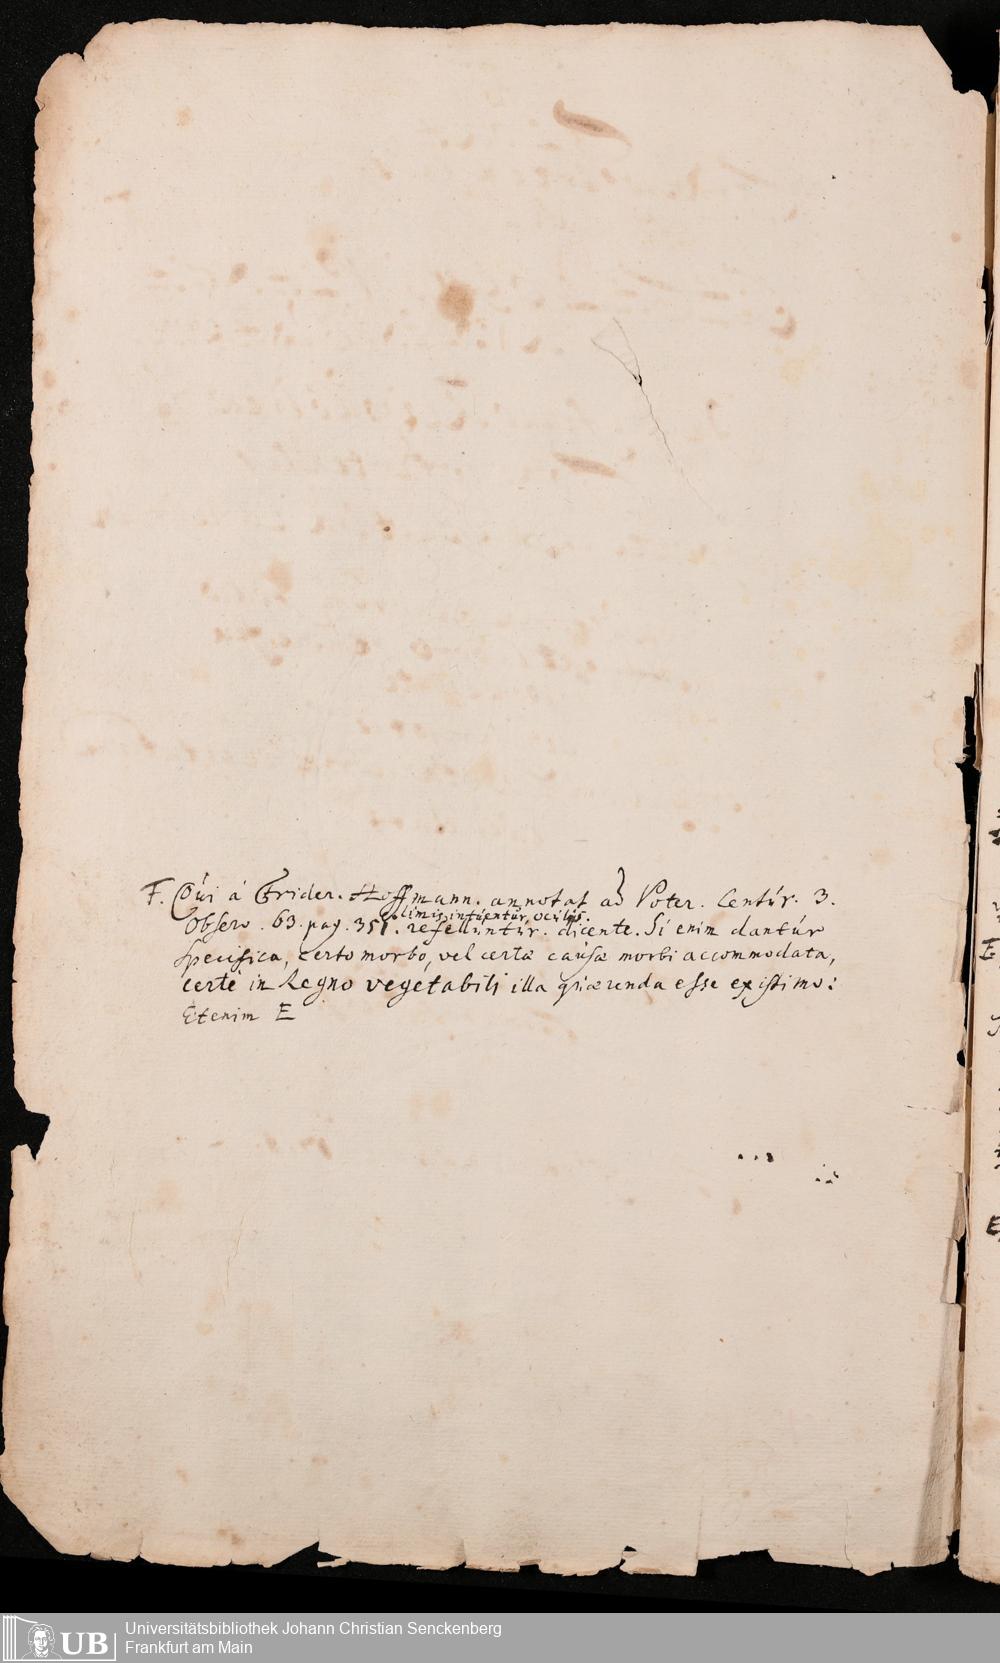 F. Qui á Frider. Hoffmann. annotat ad Poter. Centúr. 3.
limis intúentúr ocúlis.
Observ. 63. pag. 351. refellúntúr. dicente. Si enim dantúr
specifica, certo morbo, vel certæ caúsæ morbi accommodata,
certè in Regno vegetabili illa qúærenda esse existimo:
Etenim E
E
E
UB
Universitätsbibliothek Johann Christian Senckenberg
Frankfurt am Main